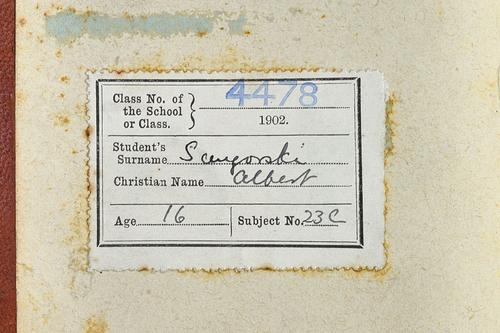 Class No. of the School or Class. } 4478
1902.
Student's Surname Sangorski
Christian Name Albert
Age 16 Subject No. 23C